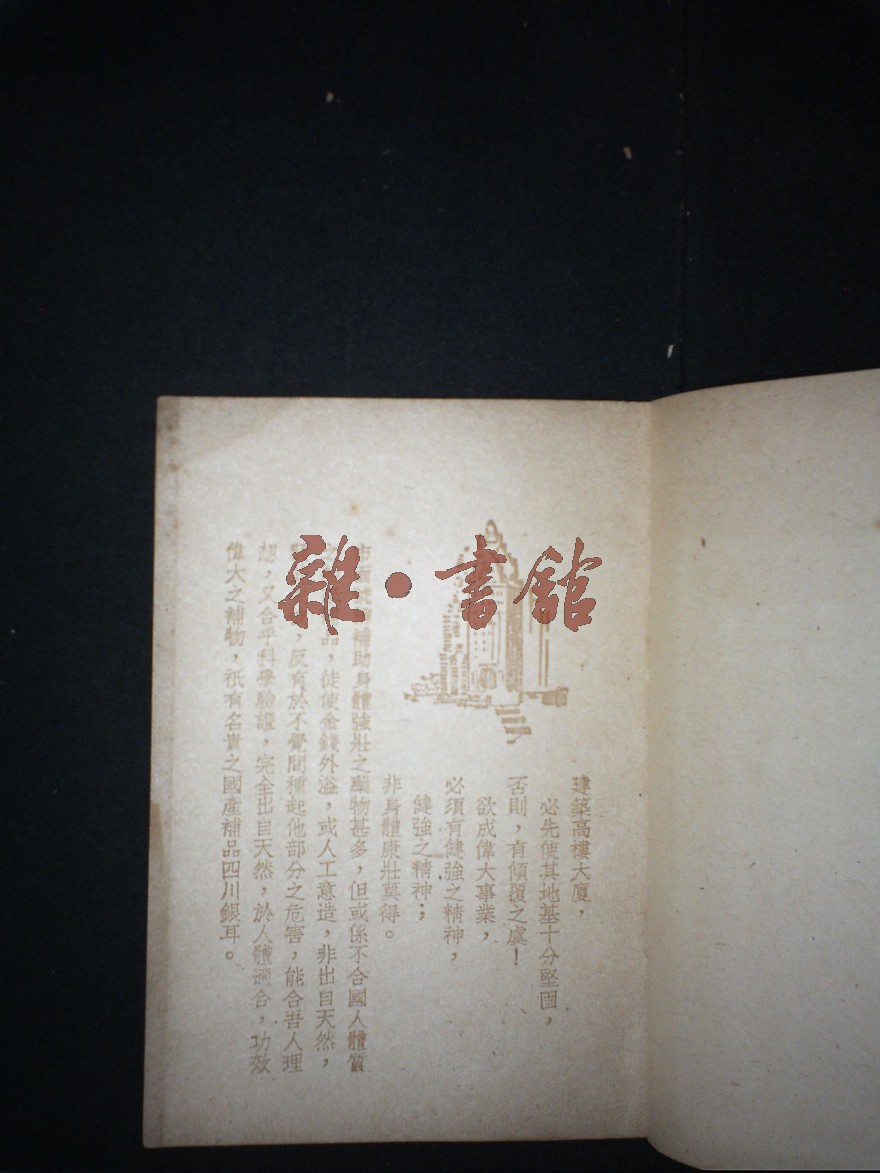 建築高樓大厦，
必先使其地基十分堅固，
否則，有傾覆之虞！
欲成偉大事業，
必須有健強之精神，
健強之精神；
非身體康壯莫得。
補助身體強壯之藥物甚多，但或係不合國人體質
品，徒使金錢外溢，或人工意造，非出自天然，
，反有於不覺間種起他部分之危害，能合吾人理
想，又合乎科學驗證，完全出自天然，於人體適合，功效
偉大之補物，祇有名貴之國產補品四川銀耳。
雜•書館